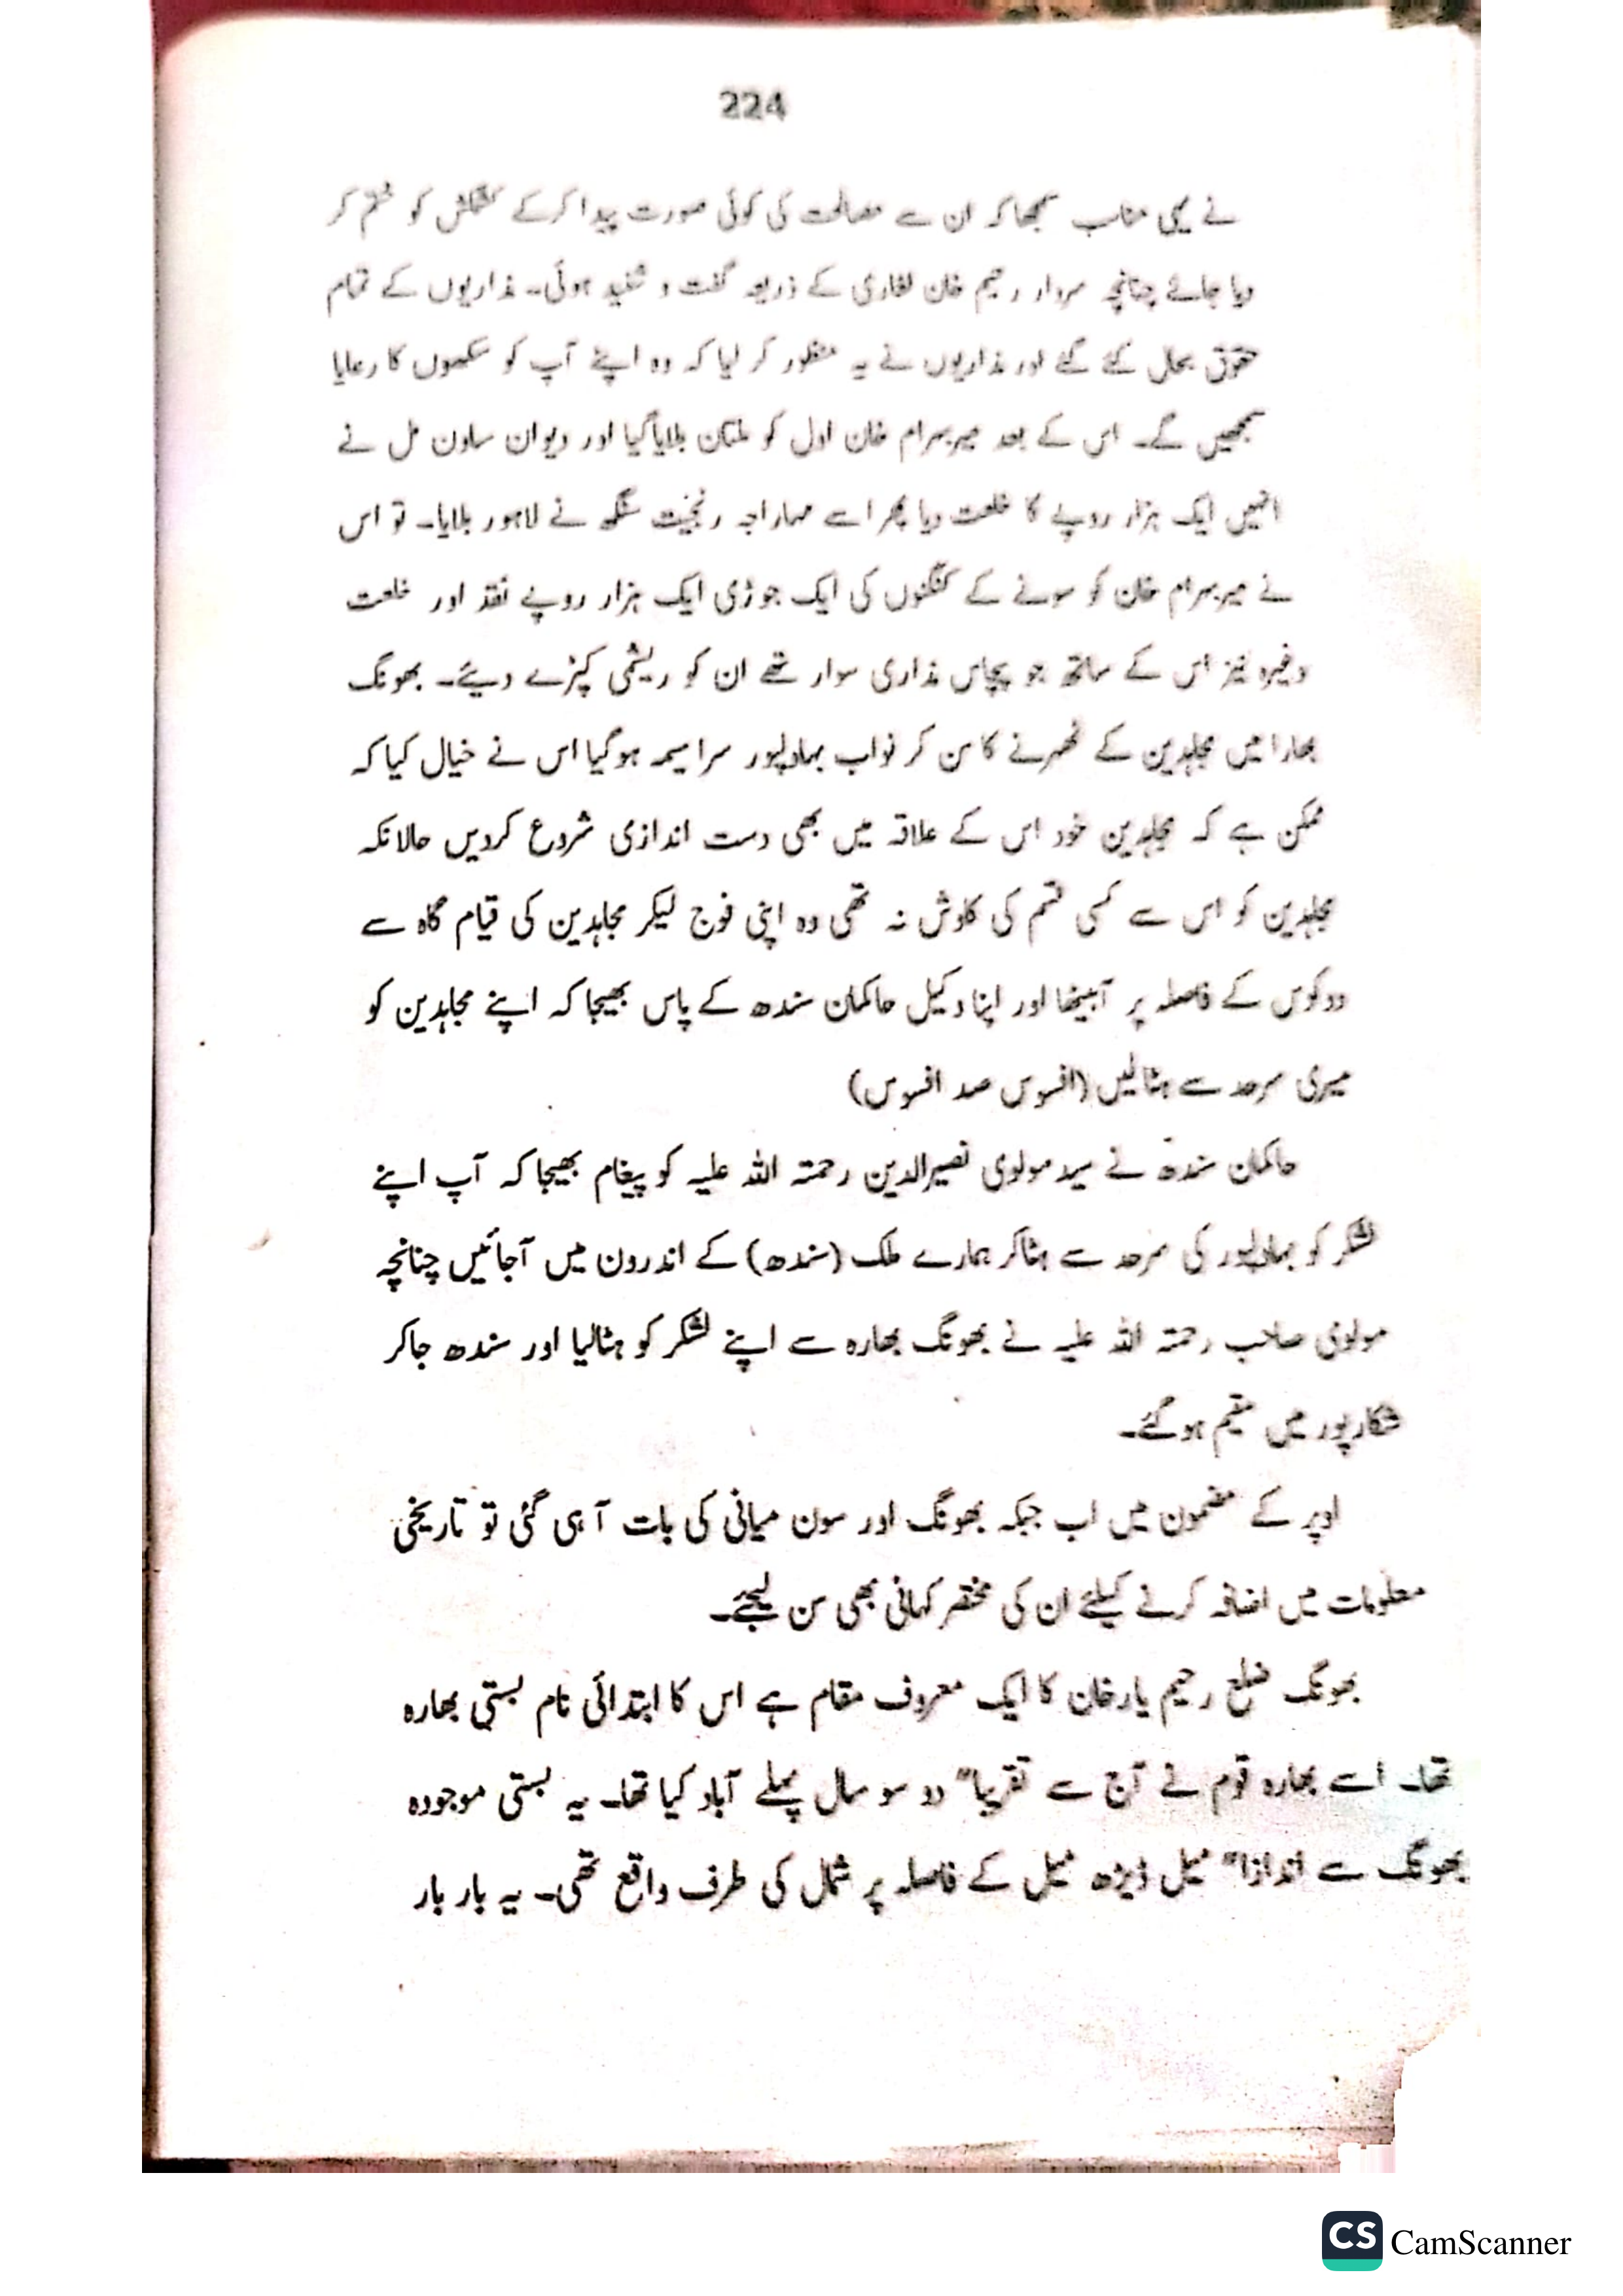 224
نے یہی مناسب سمجھا کہ ان سے مصالحت کی کوئی صورت پیدا کرکے کشمکش کو ختم کر
دیا جائے چنانچہ سردار رحیم خان لغاری کے ذریعہ گفت و شنید ہوئی۔ مزاریوں کے تمام
حقوق بحال کئے گئے اور مزاریوں نے یہ منظور کر لیا کہ وہ اپنے آپ کو سکھوں کا رعایا
سمجھیں گے۔ اس کے بعد میر بہرام خان اول کو ملتان بلایا گیا اور دیوان ساون مل نے
انہیں ایک ہزار روپے کا خلعت دیا پھر اسے مہاراجہ رنجیت سنگھ نے لاہور بلایا۔ تو اس
نے میر بہرام خان کو سونے کے کنگنوں کی ایک جوڑی ایک ہزار روپے نقد اور خلعت
وغیرہ نیز اس کے ساتھ جو پچاس مزاری سوار تھے ان کو ریشمی کپڑے دیئے۔ بھونگ
بھارا میں مجاہدین کے ٹھہرنے کا سن کر نواب بہاولپور سراسیمہ ہوگیا اس نے خیال کیا کہ
ممکن ہے کہ مجاہدین خود اس کے علاقہ میں بھی دست اندازی شروع کردیں حالانکہ
مجاہدین کو اس سے کسی قسم کی کاوش نہ تھی وہ اپنی فوج لیکر مجاہدین کی قیام گاہ سے
دو کوس کے فاصلہ پر آبیٹھا اور اپنا وکیل حاکمان سندھ کے پاس بھیجا کہ اپنے مجاہدین کو
میری سرحد سے ہٹالیں (افسوس صد افسوس)
حاکمان سندھ نے سید مولوی نصیرالدین رحمتہ اللہ علیہ کو پیغام بھیجا کہ آپ اپنے
لشکر کو بہاولپور کی سرحد سے ہٹاکر ہمارے ملک (سندھ) کے اندرون میں آجائیں چنانچہ
مولوی صاحب رحمتہ اللہ علیہ نے بھونگ بھارہ سے اپنے لشکر کو ہٹالیا اور سندھ جاکر
شکارپور میں مقیم ہوگئے۔
اوپر کے مضمون میں اب جبکہ بھونگ اور سون میانی کی بات آ ہی گئی تو تاریخی
معلومات میں اضافہ کرنے کیلئے ان کی مختصر کہانی بھی سن لیجئے۔
بھونگ ضلع رحیم یارخان کا ایک معروف مقام ہے اس کا ابتدائی نام بستی بھارہ
تھا۔ اسے بھارہ قوم نے آج سے تقریبا" دو سو سال پہلے آباد کیا تھا۔ یہ بستی موجودہ
بھونگ سے اندازا" میل ڈیڑھ میل کے فاصلہ پر شمال کی طرف واقع تھی۔ یہ بار بار
CS CamScanner